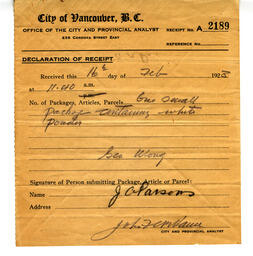 City of Vancouver, B.C.
OFFICE OF THE CITY AND PROVINCIAL ANALYST
RECEIPT No. A 2189
635 CORDOVA STREET EAST
REFERENCE No.
DECLARATION OF RECEIPT
Received this 16th day of Feb 192
at 11.00 a.m. p.m.
No. of Packages, Articles, Parcels. One small
package containing white
powder
Geo Wong
Signature of Person submitting Package, Article or Parcel:
Name J A Parsons
Address
CITY AND PROVINCIAL ANALYST